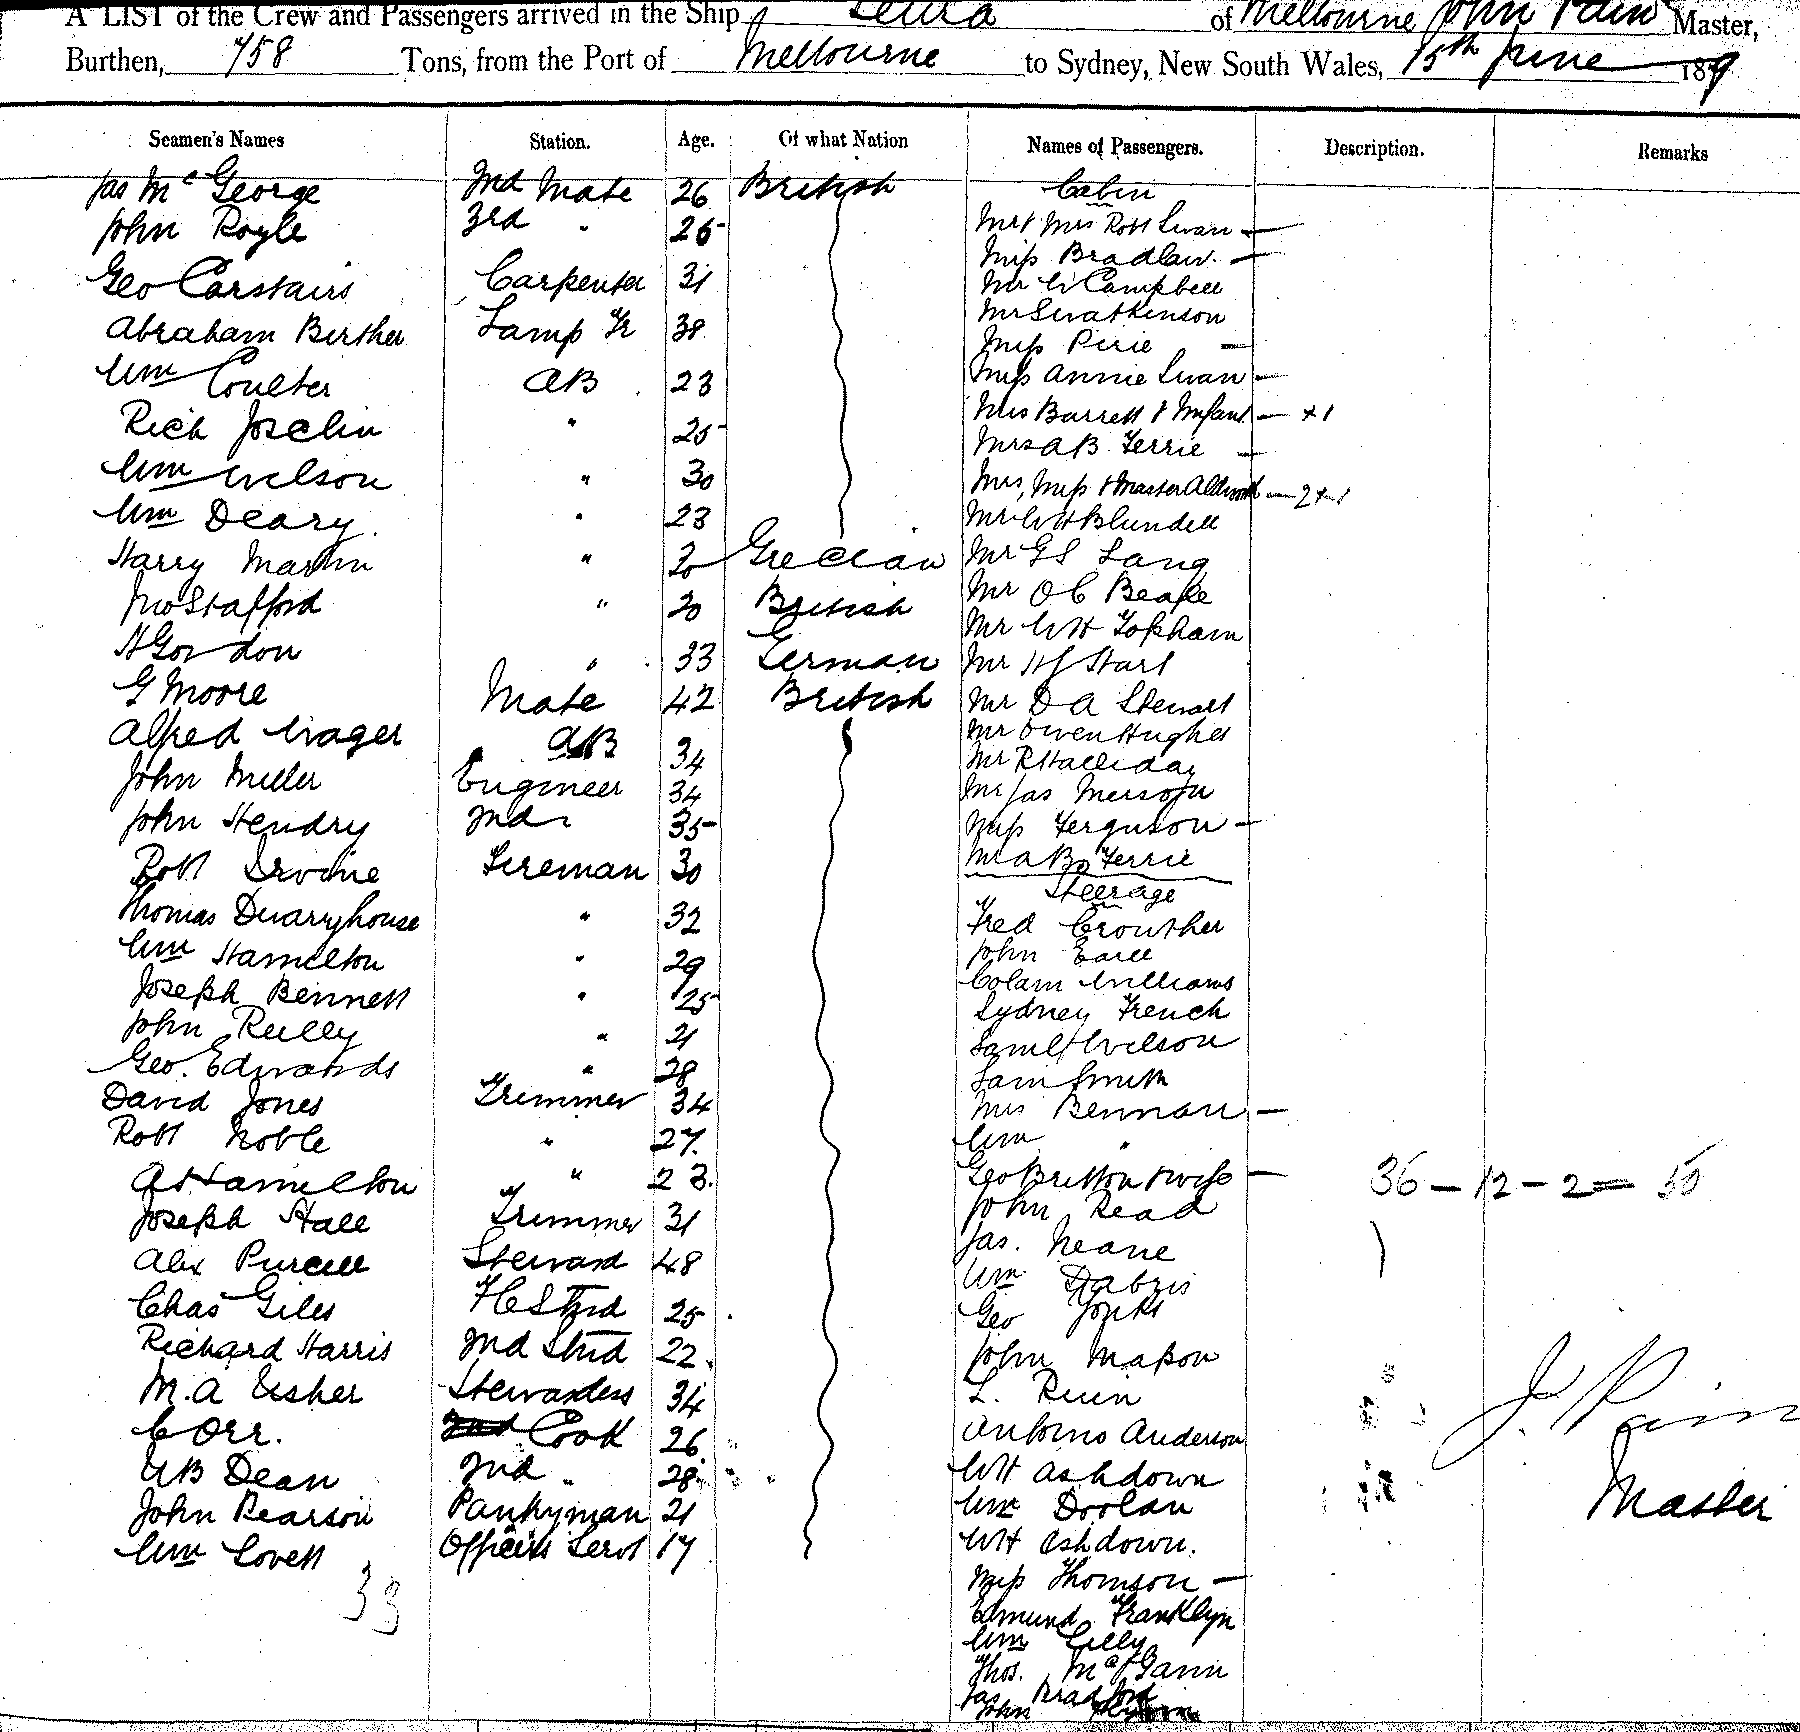 A LIST of the Crew and Passengers arrived in the Ship of Melbourne John Pain Master,
Burthen, 758 Tons, from the Port of Melbourne to Sydney, New South Wales, 15th June 1879
Seamen's Names Station. Age. Of what Nation Names of Passengers. Description. Remarks
Jas McGeorge 2nd Mate 26 British Cabin
John Royle 3rd " 25 Mr & Mrs Robt Swan —
Miss Bradlaw —
Geo Carstairs Carpenter 31 Mr W Campbell
Abraham Berther Lamp Tr 38 Mr
Miss Pirie —
Wm Coulter AB 23 Miss Annie Swan —
Rich Joselin " 25 Mrs Barrett & Infant — +1
Mrs AB Ferrie —
Wm Wilson " 30 Mrs, Miss & Master — 2+1
Wm Deary " 23 Mr WH Blundell
Harry Martin " 30 Grecian Mr GS Lang
Jno Stafford " 20 British Mr OC Beale
H Gordon " 33 German Mr WH Topham
G Moore Mate 42 British Mr HJ Hart
Mr D A Stewart
Alfred Wager AB 34 Mr Owen Hughes
John Miller Engineer 34 Mr R Halliday
Mr Jas Merson
John Hendry 2nd " 35 Miss Ferguson —
Robt Irvine Fireman 30 Mr AB Ferrie
Steerage
Thomas Quarryhouse " 32 Fred Crowther
Wm Hamilton " 29 John Earll
Joseph Bennett " 25 Colam Williams
Sydney French
John Reilly " 21 Saml Wilson
Geo. Edwards " 28 Sam Smith
David Jones Trimmer 34 Mrs Bennan —
Robt Noble " 27. Wm "
A Hamilton " 23. Geo Britton & wife — 36 – 12 – 2 = 50
Joseph Hall Trimmer 31 John Read
Alex Purcell Steward 48 Jas. Neane
Wm Dabris
Chas Giles FC Strd 25 Geo Jonks
Richard Harris 2nd Strd 22 John Mason
M. A Usher Stewardess 34 L. Ruin J. Pain
C Orr. Cook 26 Antonio Anderson
WB Dean 2nd " 28 WH Ashdown
John Pearson Pantryman 21 Wm Doolan Master
Wm Lovett Officers Servt 17 WH Ashdown.
33 Miss Thomson —
Edmund Franklyn
Wm Lilly
Thos. McGann
Jas Bradford
John